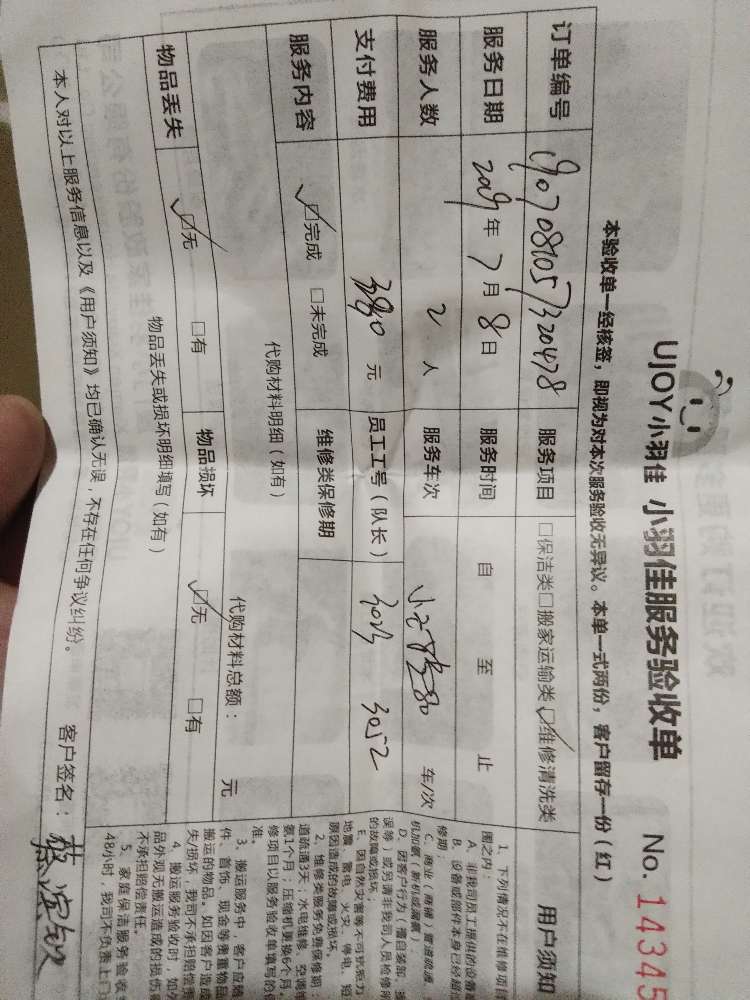 UJOY小羽佳 小羽佳服务验收单 No. 14345
本验收单一经核签，即视为对本次服务验收无异议。本单一式两份，客户留存一份（红）
订单编号 1907081057320478 服务项目 □保洁类□搬家运输类☑维修清洗类
服务日期 2019年7月8日 服务时间 自 至 止
服务人数 2人 服务车次 车/次
支付费用 380元 员工工号（队长） 3023 3052
服务内容 ☑完成 □未完成 维修类保修期
代购材料明细（如有） 代购材料总额： 元
物品丢失 ☑无 □有 物品损坏 ☑无 □有
物品丢失或损坏明细填写（如有）
本人对以上服务信息以及《用户须知》均已确认无误，不存在任何争议纠纷。 客户签名：
用户须知
1、下列情况不在维修项目
围之内：
A、非我司员工提供的设备
B、设备或部件本身已经超
修期；
C、商业（商铺）管道疏通
机加氨（新机或漏氨）
D、因客户行为（擅自装卸
误等）或另请非我司人员检修
的故障或损坏；
E、因自然灾害等不可抗力
地震、雷电、火灾、停电、
原因造成的故障或损坏。
2、维修类服务免费保修期：
道疏通3天；水电维修、空调
氨1个月；压缩机更换6个月。
修项目以服务验收单填写的
准。
3、搬运服务中，客户应
件、首饰、现金等贵重物品
搬运的物品。如因客户造成
失/损坏，我司不承担赔偿责
4、搬运服务验收时，如
品外观无搬运造成的损伤
不承担赔偿责任。
5、家庭保洁服务验收
48小时，我司不负责上门